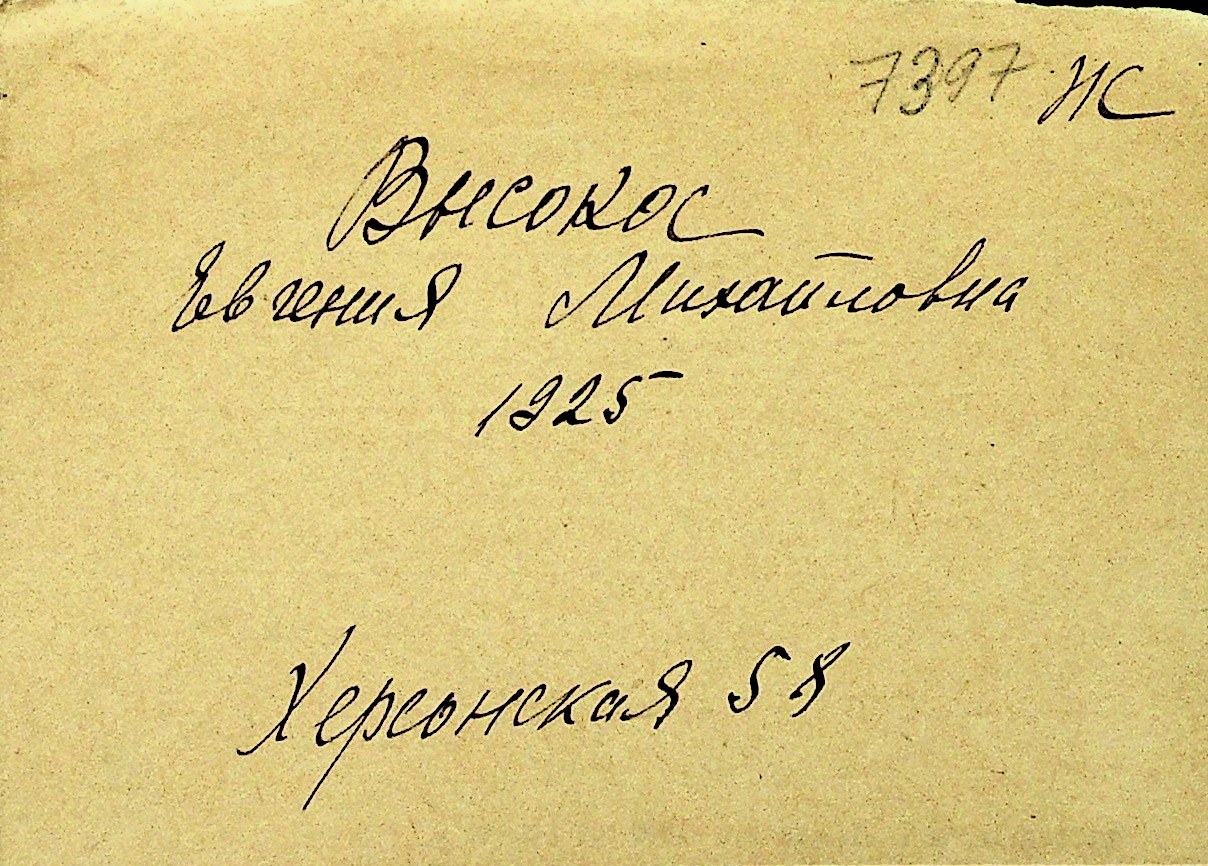 7397 НС
Высокос
Евгения Михайловна
1925
Херсонская 58